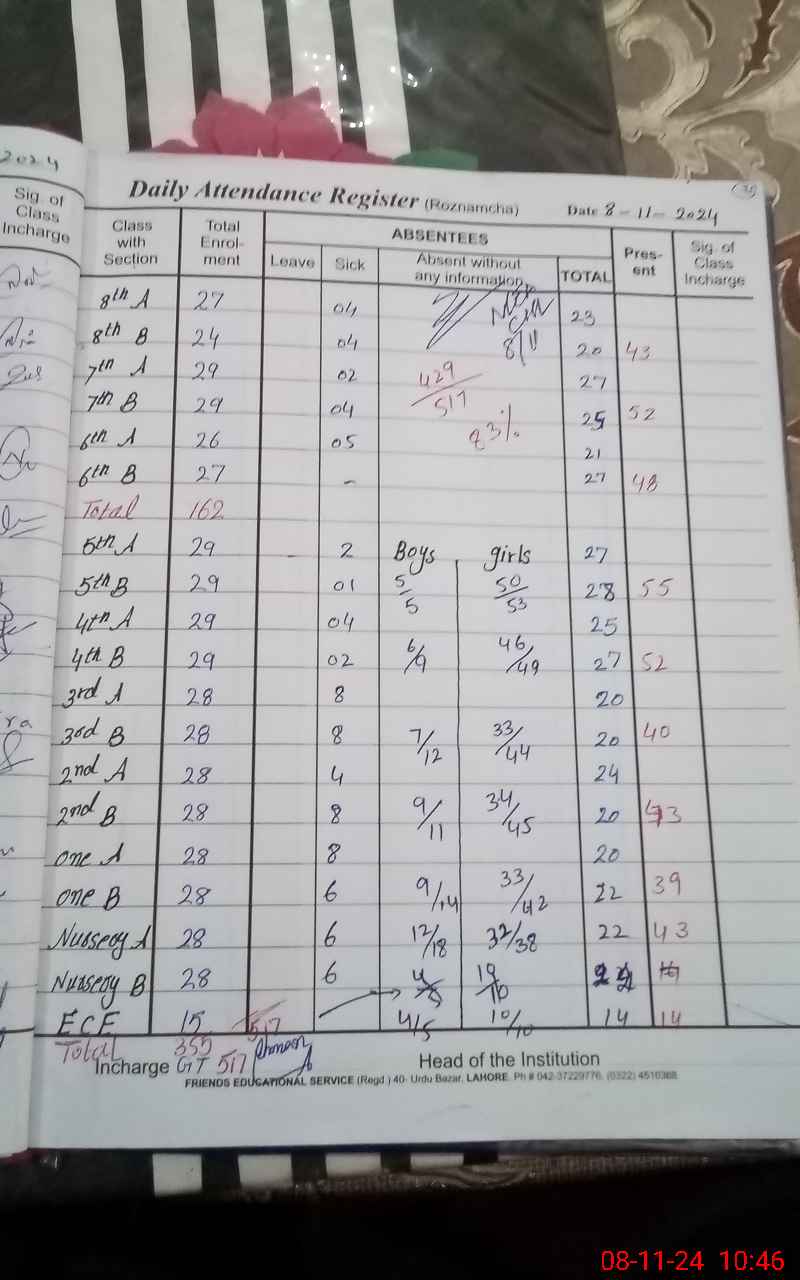 2024
Sig. of
Class
Incharge
Daily Attendance Register (Roznamcha) Date 8-11-2024
Class with Section Total Enrol-ment ABSENTEES Pres-ent Sig. of Class Incharge
Leave Sick Absent without any information TOTAL
8th A 27 04 23
8th B 24 04 8/11 20 43
7th A 29 02 429/517 27
7th B 29 04 83% 25 52
6th A 26 05 21
6th B 27 - 27 48
Total 162
5th A 29 - 2 Boys girls 27
5th B 29 01 5/5 50/53 28 55
4th A 29 04 25
4th B 29 02 6/9 46/49 27 52
3rd A 28 8 20
3rd B 28 8 7/12 33/44 20 40
2nd A 28 4 24
2nd B 28 8 9/11 34/45 20 43
one A 28 8 20
one B 28 6 9/14 33/42 22 39
Nursery A 28 6 12/18 32/38 22 43
Nursery B 28 6 22
ECE 15 517 4/5 10/10 14 14
Total 355
Incharge GT 517 Head of the Institution
FRIENDS EDUCATIONAL SERVICE (Regd.) 40- Urdu Bazar, LAHORE. Ph # 042-37229776, (0322) 4510368
08-11-24 10:46